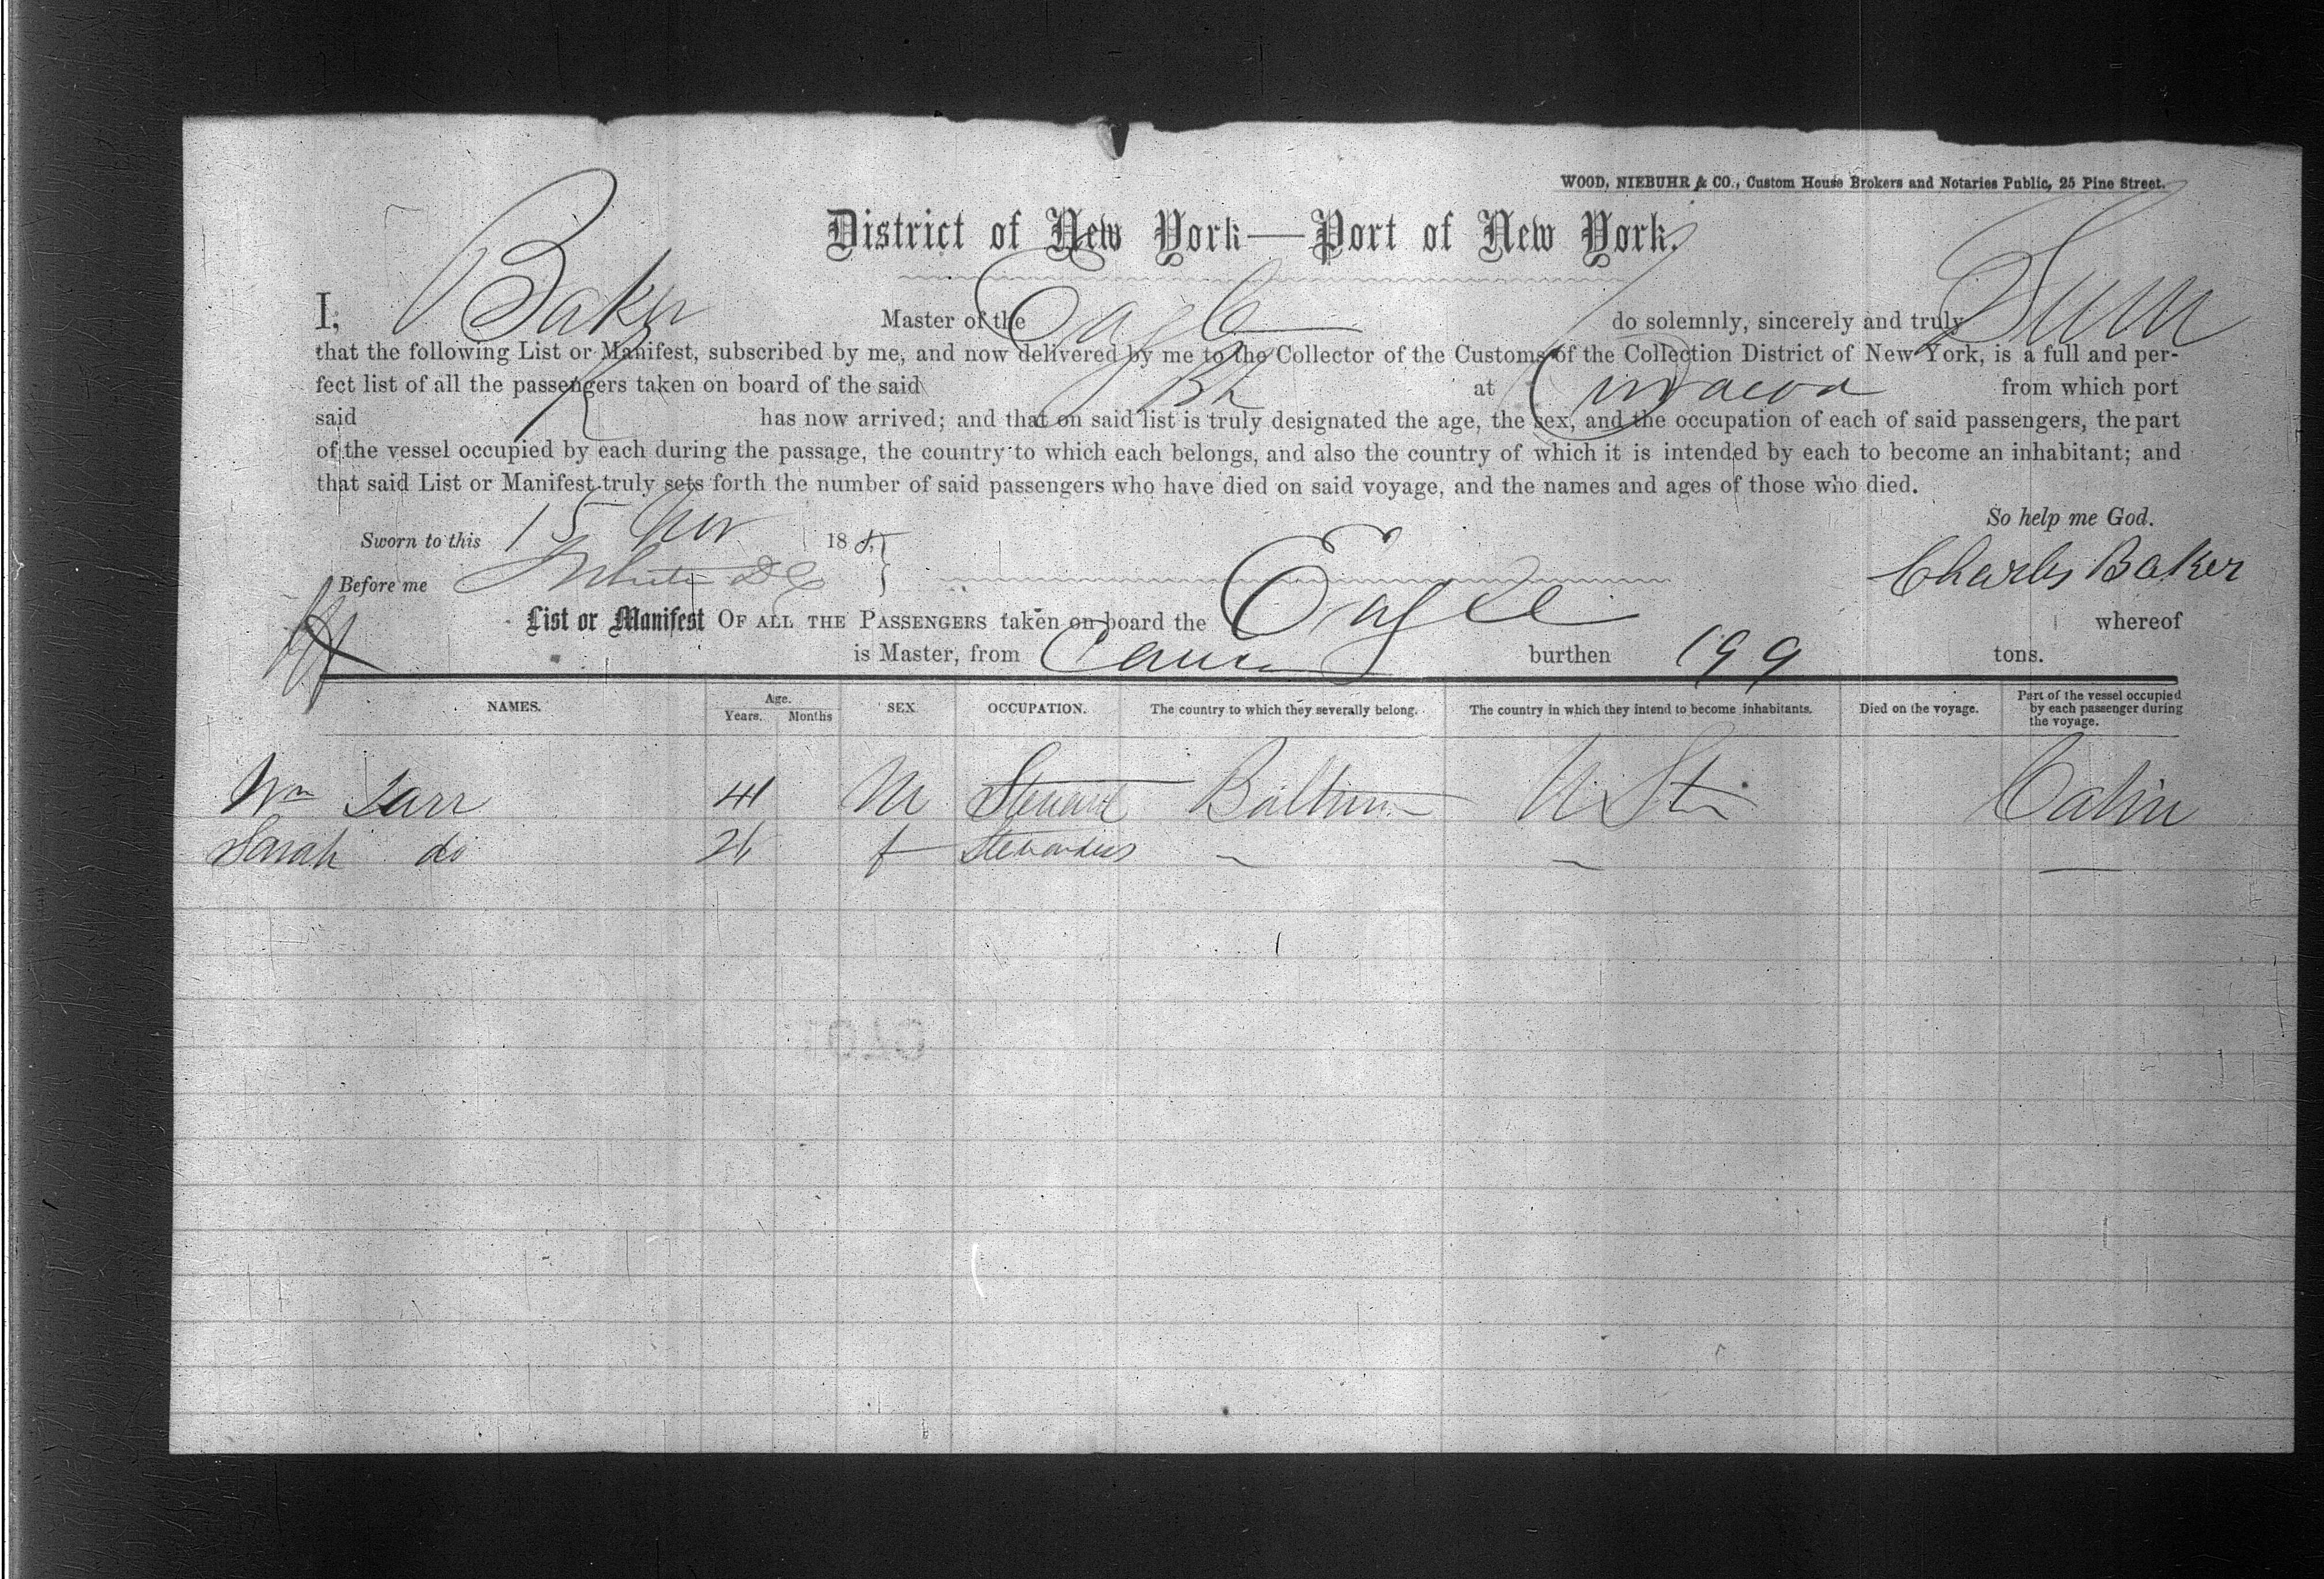 WOOD, NIEBUHR & CO., Custom House Brokers and Notaries Public, 25 Pine Street.
District of New York—Port of New York.
I, Baker Master of the Eagle do solemnly, sincerely and truly
that the following List or Manifest, subscribed by me, and now delivered by me to the Collector of the Customs of the Collection District of New York, is a full and per-
fect list of all the passengers taken on board of the said at from which port
said has now arrived; and that on said list is truly designated the age, the sex, and the occupation of each of said passengers, the part
of the vessel occupied by each during the passage, the country to which each belongs, and also the country of which it is intended by each to become an inhabitant; and
that said List or Manifest truly sets forth the number of said passengers who have died on said voyage, and the names and ages of those who died.
So help me God.
Sworn to this 15 Nov 18
Before me
Charles Baker
List or Manifest OF ALL THE PASSENGERS taken on board the Eagle whereof
is Master, from burthen 199 tons.
NAMES. Age. Years. Months SEX. OCCUPATION. The country to which they severally belong. The country in which they intend to become inhabitants. Died on the voyage. Part of the vessel occupied by each passenger during the voyage.
Wm 41 M Steward U St Cabin
Sarah do 26 f Stewardess